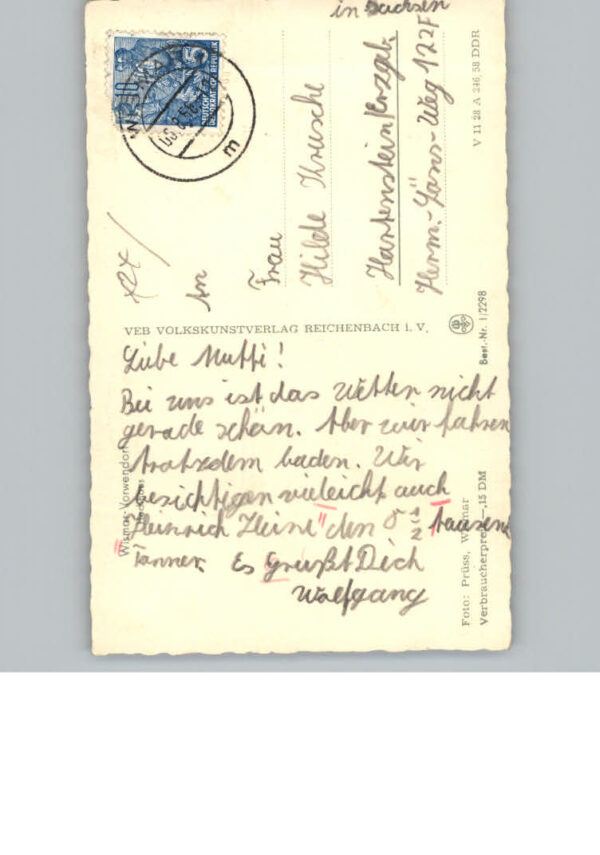 Liebe Mutti!
Bei uns ist das Wetter nicht
gerade schön. Aber wir fahren
trotzdem baden. Wir
besichtigen vieleicht auch
"Heinrich Heine" den 8 1/2 tausend
Tonner. Es Grüßt Dich
Wolfgang
An
Frau
Hilde Krusche
Hartenstein/Erzgb.
Herm.-Löns-Weg 122F
in Sachsen
VEB VOLKSKUNSTVERLAG REICHENBACH i. V.
Wismar-Vorwendorf
Foto: Prüss, Wismar
Verbraucherpreis -,15 DM
Best.-Nr. 1/2298
V 11 28 A 246/58 DDR
10
5
DEUTSCHE
DEMOKRATISCHE REPUBLIK
WISMAR
m